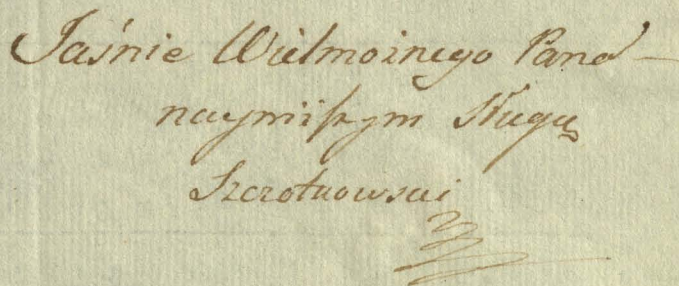 Jaśnie Wielmożnego Pana
nayniższym sługą
Szczotkowski